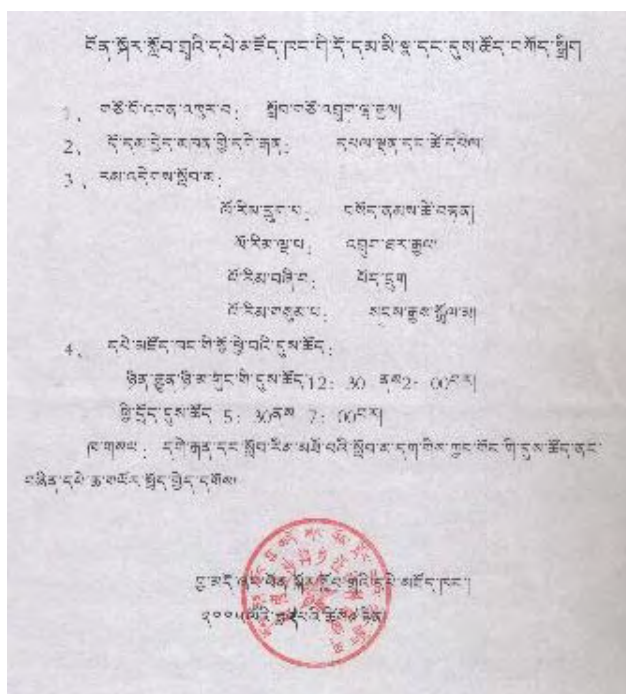 བོན་སྐོར་སློབ་གྲྭའི་དཔེ་མཛོད་ཁང་གི་དོ་དམ་མི་སྣ་དང་དུས་ཚོད་བཀོད་སྒྲིག
1、 གཙོ་བོ་འགན་འཁུར་བ: སློབ་གཙོ་འབྲུག་ལྷ་རྒྱལ།
2、 དོ་དམ་བྱེད་མཁན་གྱི་དགེ་རྒན: དཔལ་ལྡན་དང་ཚེ་དཔལ།
3、 རམ་འདེགས་སློབ་མ:
ལོ་རིམ་དྲུག་པ: བསོད་ནམས་ཚེ་བརྟན།
ལོ་རིམ་ལྔ་པ: འབྲུག་ཐར་རྒྱལ།
ལོ་རིམ་བཞི་བ: པོད་དྲུག
ལོ་རིམ་གསུམ་པ: སངས་རྒྱས་སྒྲོལ་མ།
4、 དཔེ་མཛོད་ཁང་གི་སྒོ་ཕྱེ་བའི་དུས་ཚོད:
ཉིན་རྒྱུན་ཉི་མ་གུང་གི་དུས་ཚོད་12: 30 ནས2: 00བར།
ཕྱི་དྲོད་དུས་ཚོད 5: 30ནས 7: 00བར།
ཁ་གསལ: དགེ་རྒན་དང་སློབ་རིམ་མཐོ་བའི་སློབ་མ་དག་གིས་ཀྱང་གོང་གི་དུས་ཚོད་ནང་
བཞིན་དཔེ་ཆ་གཡོར་སྤྱོད་བྱེད་དགོས།
བོན་སྐོར་སློབ་གྲྭའི་དཔེ་མཛོད་ཁང་།
༢༠༠༥ལོའི་